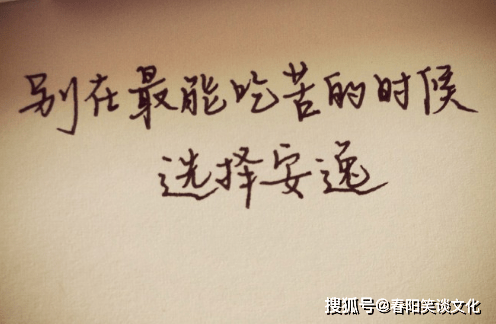 别在最能吃苦的时候
选择安逸
搜狐号@春阳笑谈文化